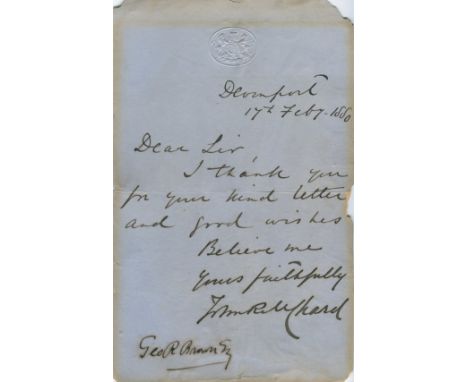 Devonport
17th Feby. 1880
Dear Sir,
I thank you
for your kind letter
and good wishes
Believe me
Yours faithfully
John R M Chard
Geo R Brown Esq